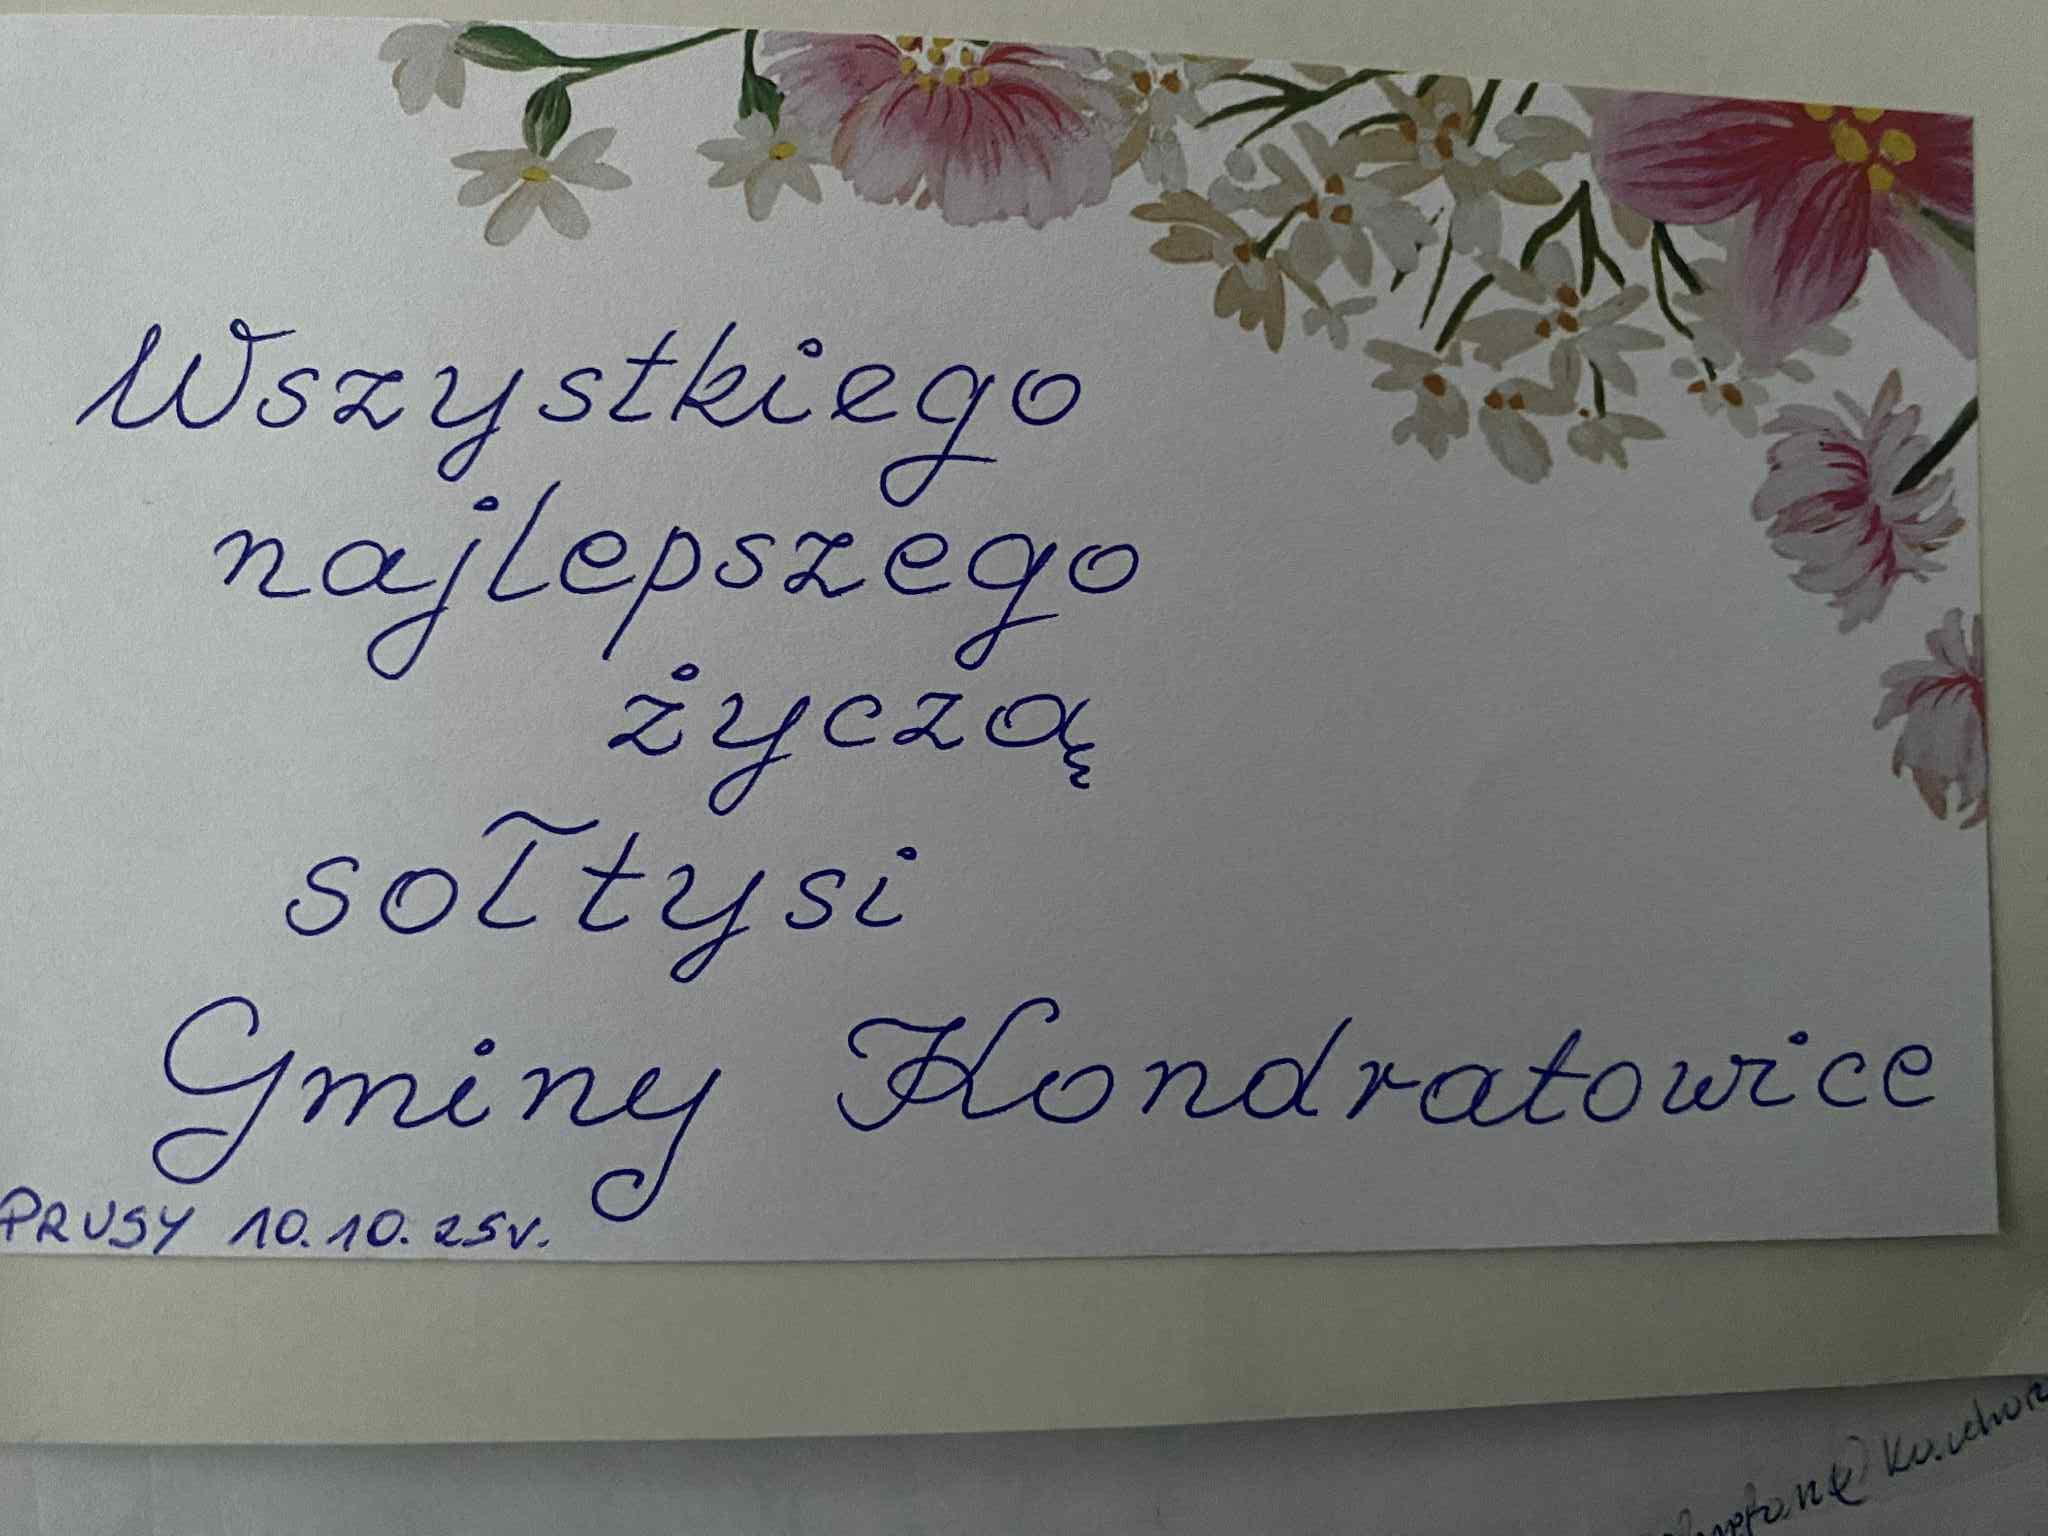 Wszystkiego
najlepszego
życzą
sołtysi
Gminy Kondratowice
PRUSY 10.10.25r.